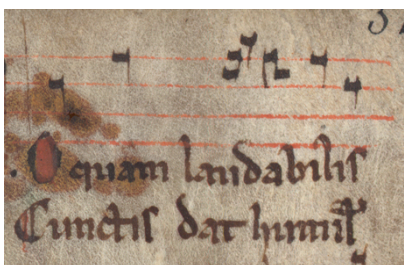 O quam laudabilis
Cunctis dat humil